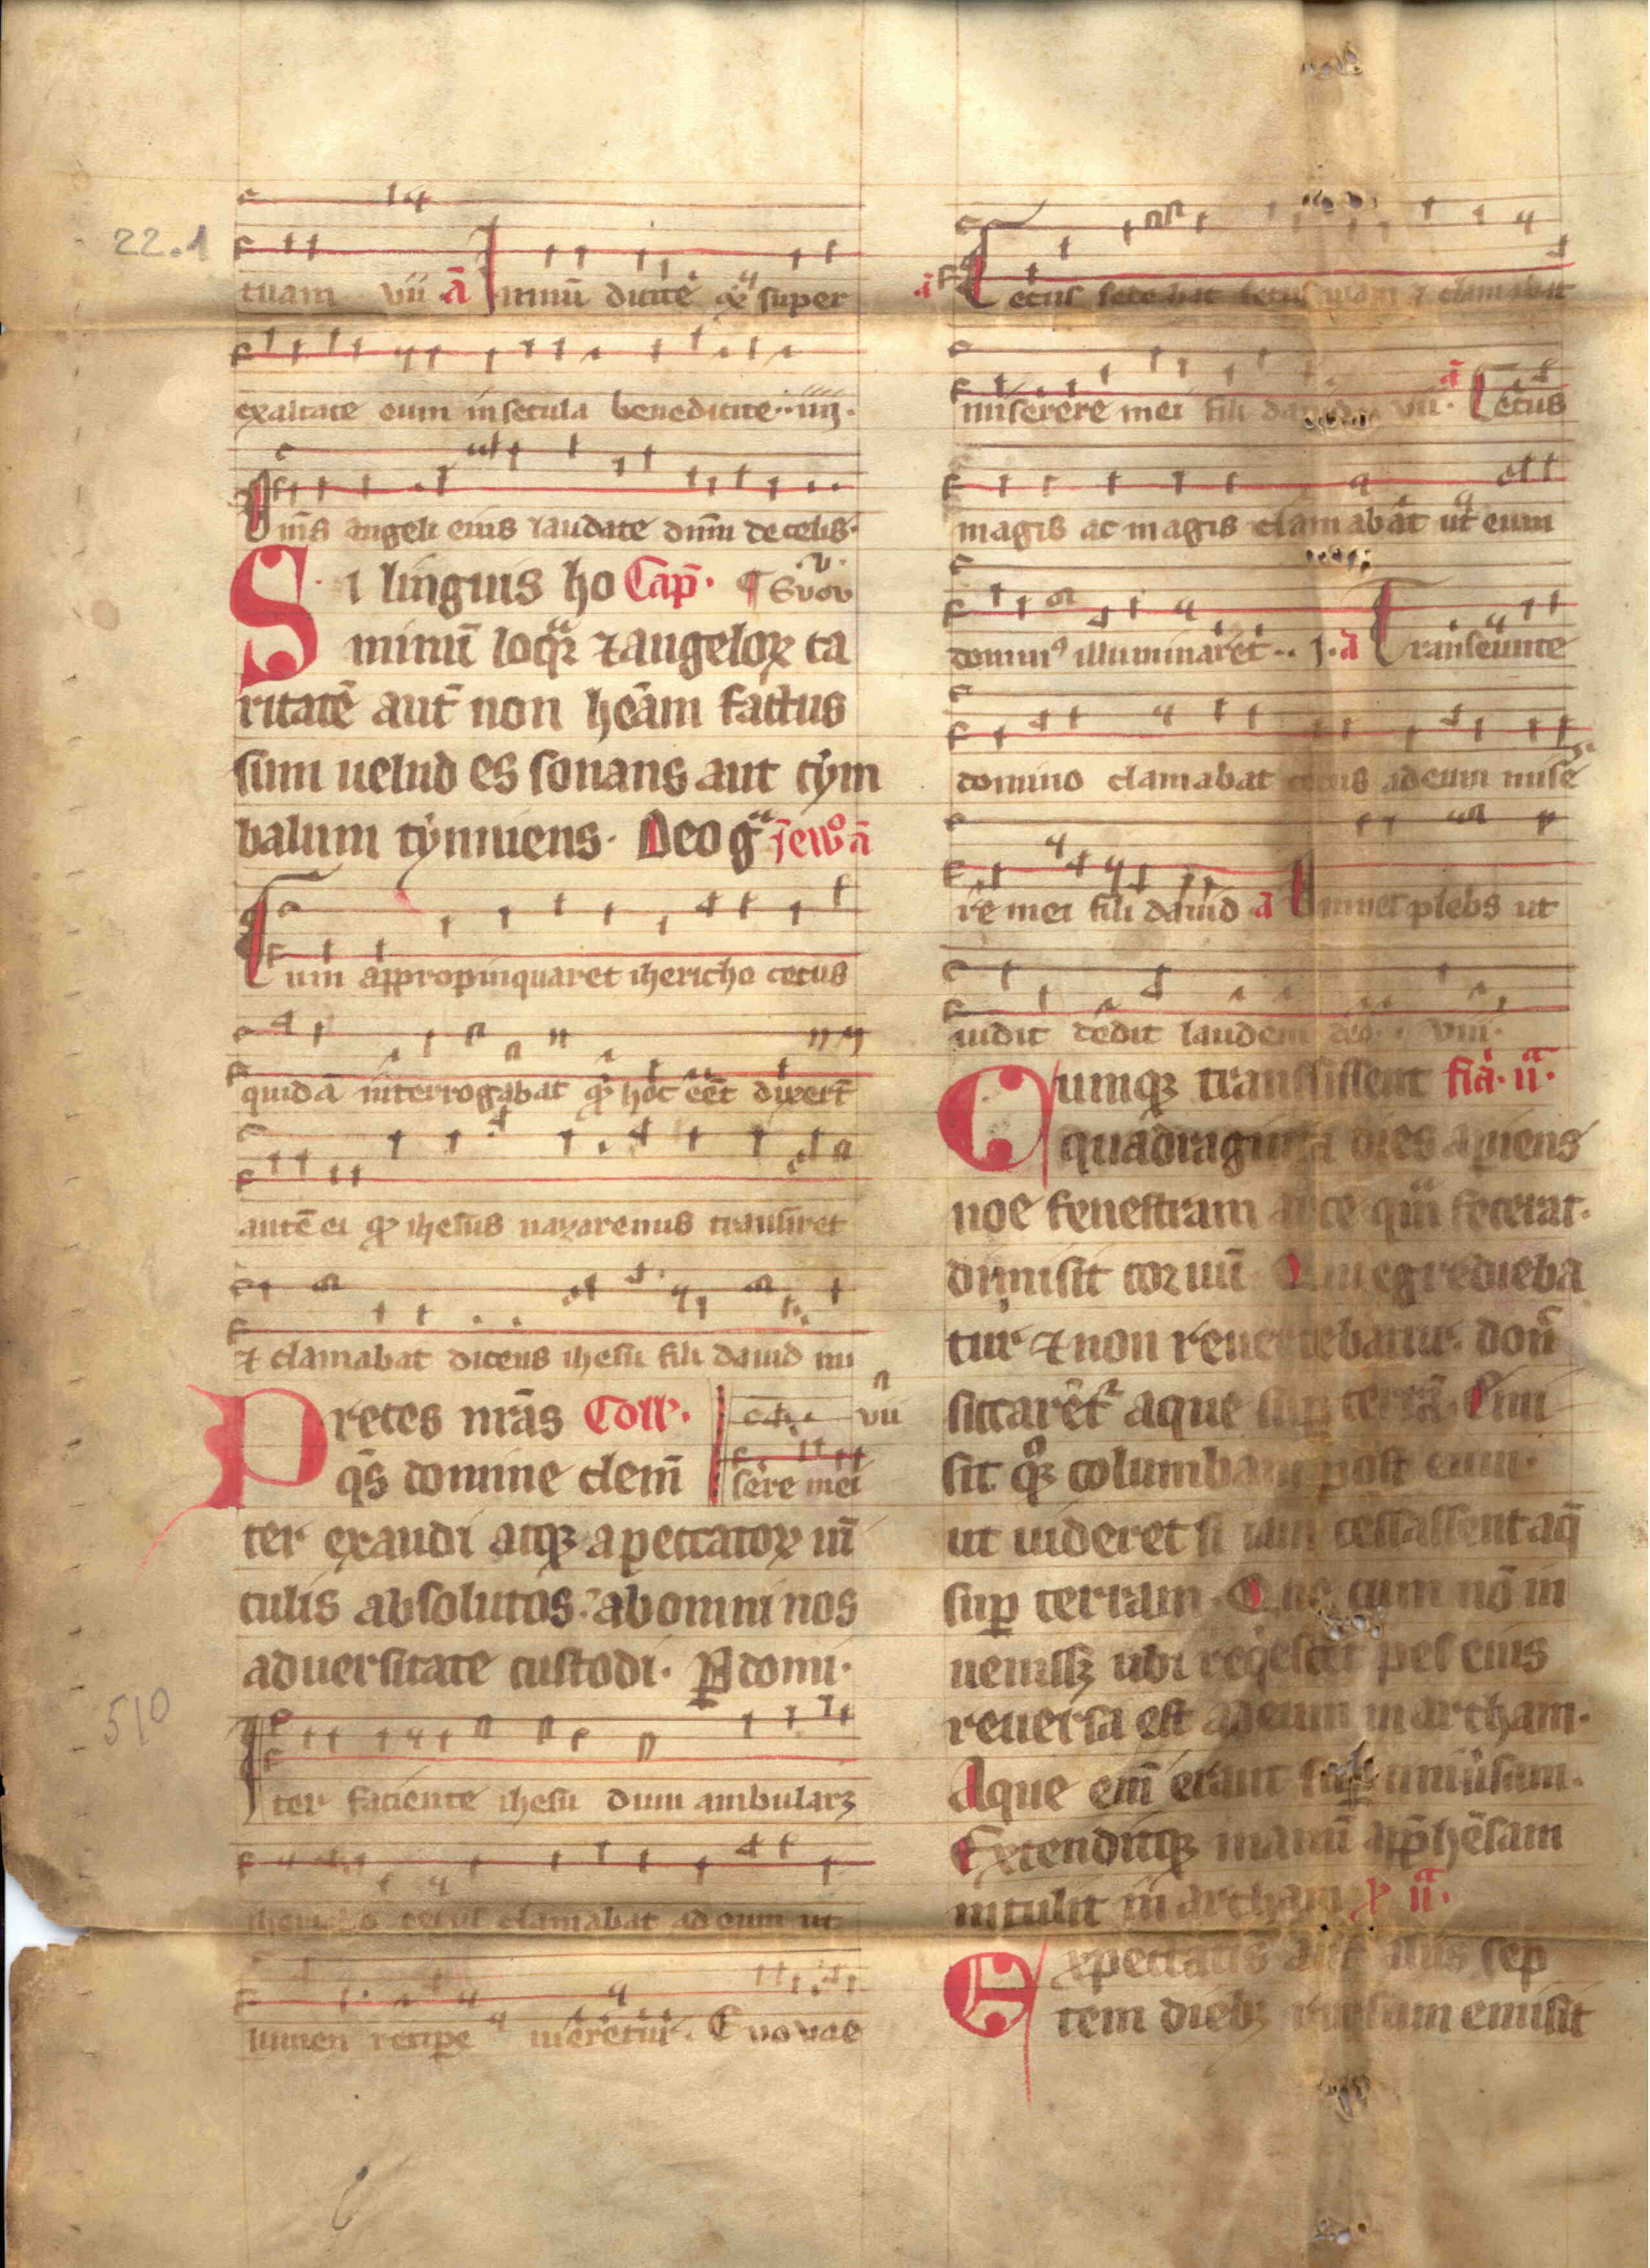 22.1
tuam vii ā Hmnū dicite & super
exaltate eum in secula benedicite iiij.
Omīs angeli eius laudate dnm̄ de celis.
Si linguis ho Cap̄. Euou
minū loqr̄ ⁊ angeloꝝ ca
ritatē aut̄ non hēam factus
sum uelud es sonans aut cym
balum tynniens. Deo gͣ
Cum appropinquaret ihericho cecus
quidā interrogabat hoc eēt dixert̄
autē ei ihesus nazarenus transiret
⁊ clamabat dicens ihesu fili dauid mi
Preces nr̄as Coll. vii
qs̄ domine clem̄ sere mei
ter exaudi atqꝫ a peccatoꝝ uī
culis absolutos: ab omni nos
aduersitate custodi. P domi.
510
Iter faciente ihesu dum ambularꝫ
ihericho cecus clamabat ad eum ut
lumen recipe mēretur. Euouae
ā Cecus sedebat secus uiam ⁊ clamabat
miserere mei fili dauid vii. ā Cecus
magis ac magis clamabat ut eum
dominꝰ illuminaret.. j. ā Transeunte
domino clamabat cecus ad eum mise
re mei fili dauid ā Omnes plebs ut
uidit dedit laudem deo. viii.
Cumqꝫ transsissent fīa. iiͣ.
quadraginta dies apiens
noe fenestram arce quā fecerat.
dimisit coruū Qui egredieba
tur ⁊ non reuertebatur. don̄
siccarēt aque suꝑ terrā. Emi
sit qꝫ columbam post eum.
ut uideret si iam cessassent aq̄
suꝑ terram. Que cum nō in
uenissꝫ ubi reqesceret pes eius
reuersa est ad eum in archam.
Aque em̄ erant suꝑ uniūsam.
Extenditqꝫ manū app̄hēsam
intulit in archam ꝶ iiͣ.
Expectatis aut̄ aliis sep
tem diebꝫ rursum emisit